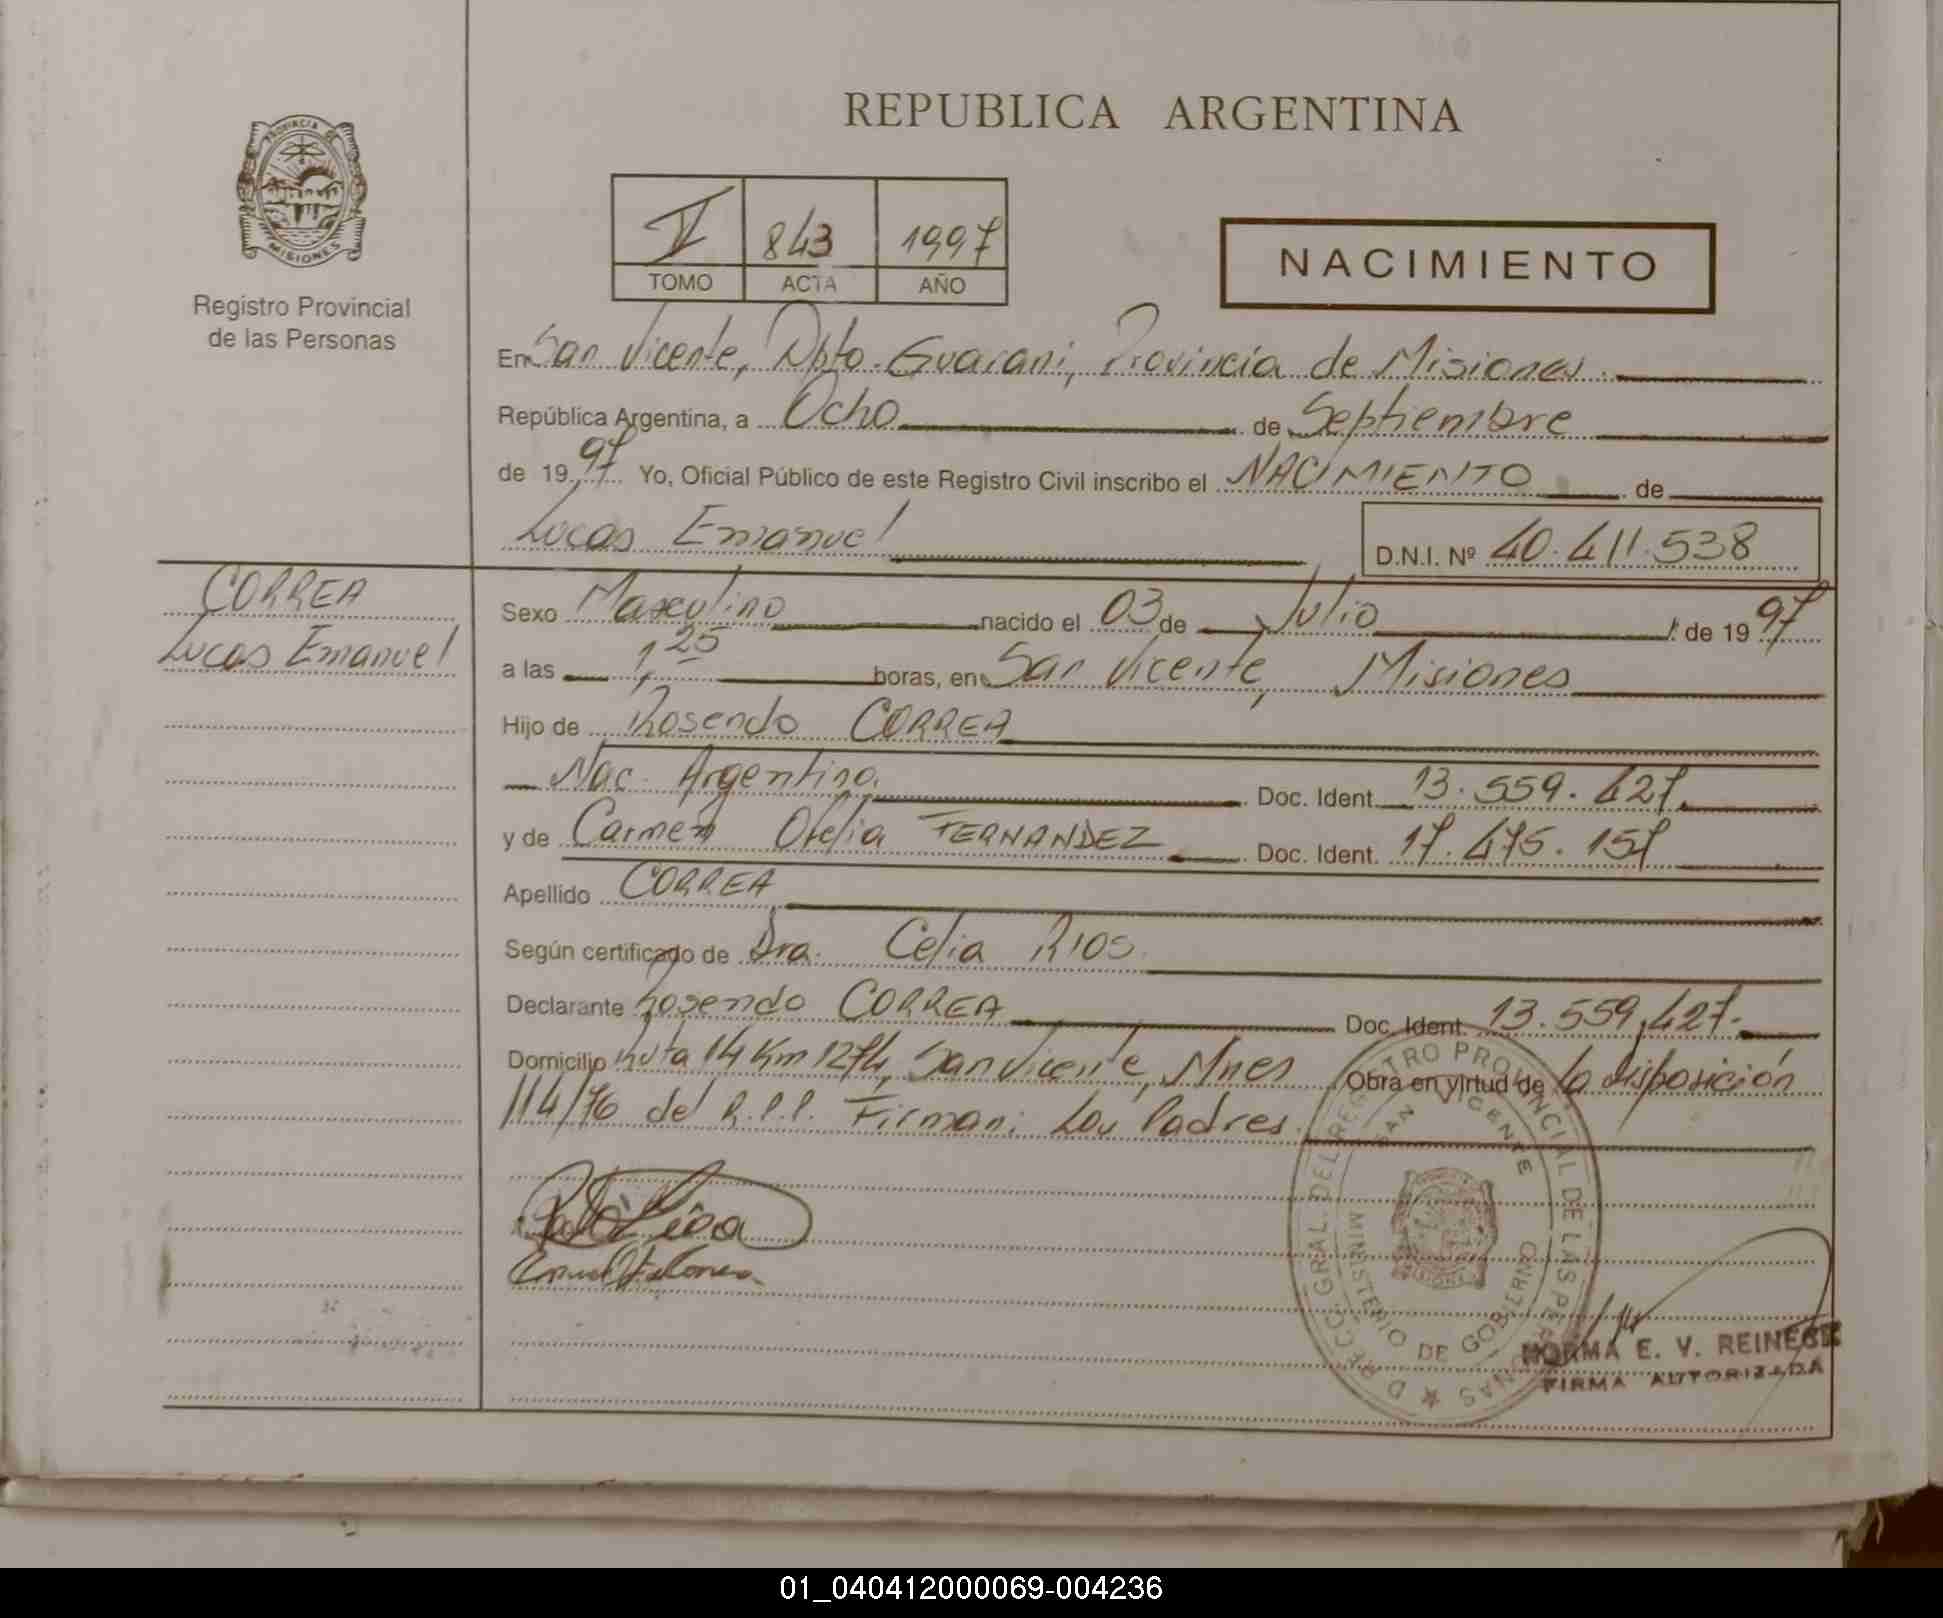 REPUBLICA ARGENTINA
PROVINCIA DE
MISIONES
Registro Provincial
de las Personas
V 843 1997
TOMO ACTA AÑO
NACIMIENTO
En San Vicente, Dpto. Guarani, Provincia de Misiones.
República Argentina, a Ocho de Septiembre
de 1997. Yo, Oficial Público de este Registro Civil inscribo el NACIMIENTO de
Lucas Emanuel
D.N.I. Nº 40.411.538
CORREA
Lucas Emanuel
Sexo Masculino nacido el 03 de Julio de 1997
a las 1,25 horas, en San Vicente, Misiones
Hijo de Rosendo CORREA
Nac. Argentina. Doc. Ident. 13.559.427
y de Carmen Ofelia FERNANDEZ Doc. Ident. 17.475.157
Apellido CORREA
Según certificado de Dra. Celia RIOS.
Declarante Rosendo CORREA Doc. Ident. 13.559.427.
Domicilio Ruta 14 Km 1274, San Vicente, Mnes Obra en virtud de la disposición
114/76 del R.P.P. Firman: Los Padres
DIRECC. GRAL. DEL REGISTRO PROVINCIAL DE LAS PERSONAS
SAN VICENTE
MINISTERIO DE GOBIERNO
MISIONES
NORMA E. V. REINECK
FIRMA AUTORIZADA
01_040412000069-004236